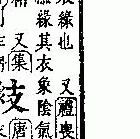 衣緣也 又禮喪
緣其衣象陰氣
又集
唐